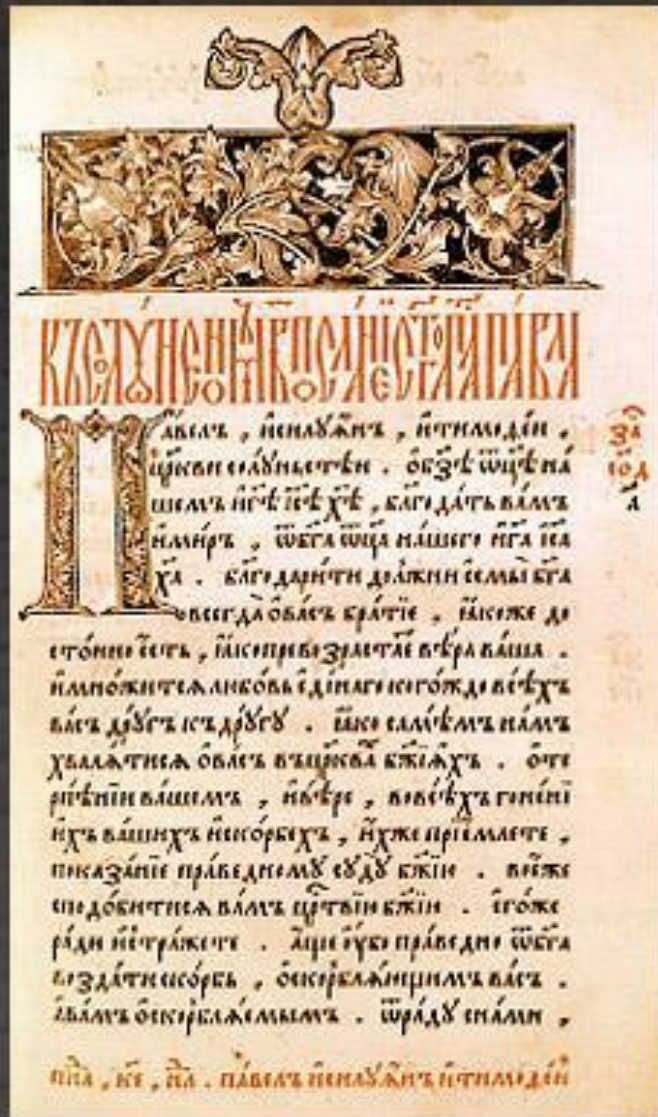 КЪСОЛꙊ́НЕНѠМЪ В҃ПОСЛА́НІЕСТ҃ГОАП҃ЛАПА́ВЛА
Па́велъ , исилꙋа́нъ , итимоѳе́и ,
цр҃квисолꙋ́ньстѣи . ѻб҃зѣ ѿц҃ѣна́
шемъ иг҃ѣ іс҃ѣ хе҃ѣ , благода́ть ва́мъ
имиръ , ѿбг҃а ѿц҃а на́шего иг҃а іс҃а
ха҃ . благодари́ти до́лжни есмы̀ бг҃а
всегда̀ ѻва́съ бра́тїе , ꙗ́коже до
сто́ино е́сть , ꙗ́копревозраста́е вѣ́ра ва́ша .
имно́житсѧ любо́вь еди́наго кого́ждо всѣ́хъ
ва́съ дрꙋ́гъ къ дрꙋ́гꙋ . ꙗ́ко самѣ́мъ на́мъ
хвали́тисѧ ѻва́съ въцр҃ква бж҃їихъ . ѻте
рпѣ́нїи ва́шемъ , ивѣ́ре , вовсѣ́хъ гоне́нї
ихъ ва́шихъ иско́рбехъ , и́хже прїе́млете ,
показа́нїе пра́ведномꙋ сꙋдꙋ̀ бж҃їю . во́еже
сподо́битисѧ ва́мъ цр҃твїю бж҃їю . его́же
ра́ди истра́жете . а́ще ꙋ́бо пра́ведно ѿбг҃а
возда́ти ско́рбь , ѻскорблѧ́ющимъ ва́съ .
ава́мъ ѻскорблѧ́емымъ . ѿра́дꙋ сна́ми ,
за҃
со҃д
а
нл҃ . па́велъ исилꙋа́нъ итимоѳе́и